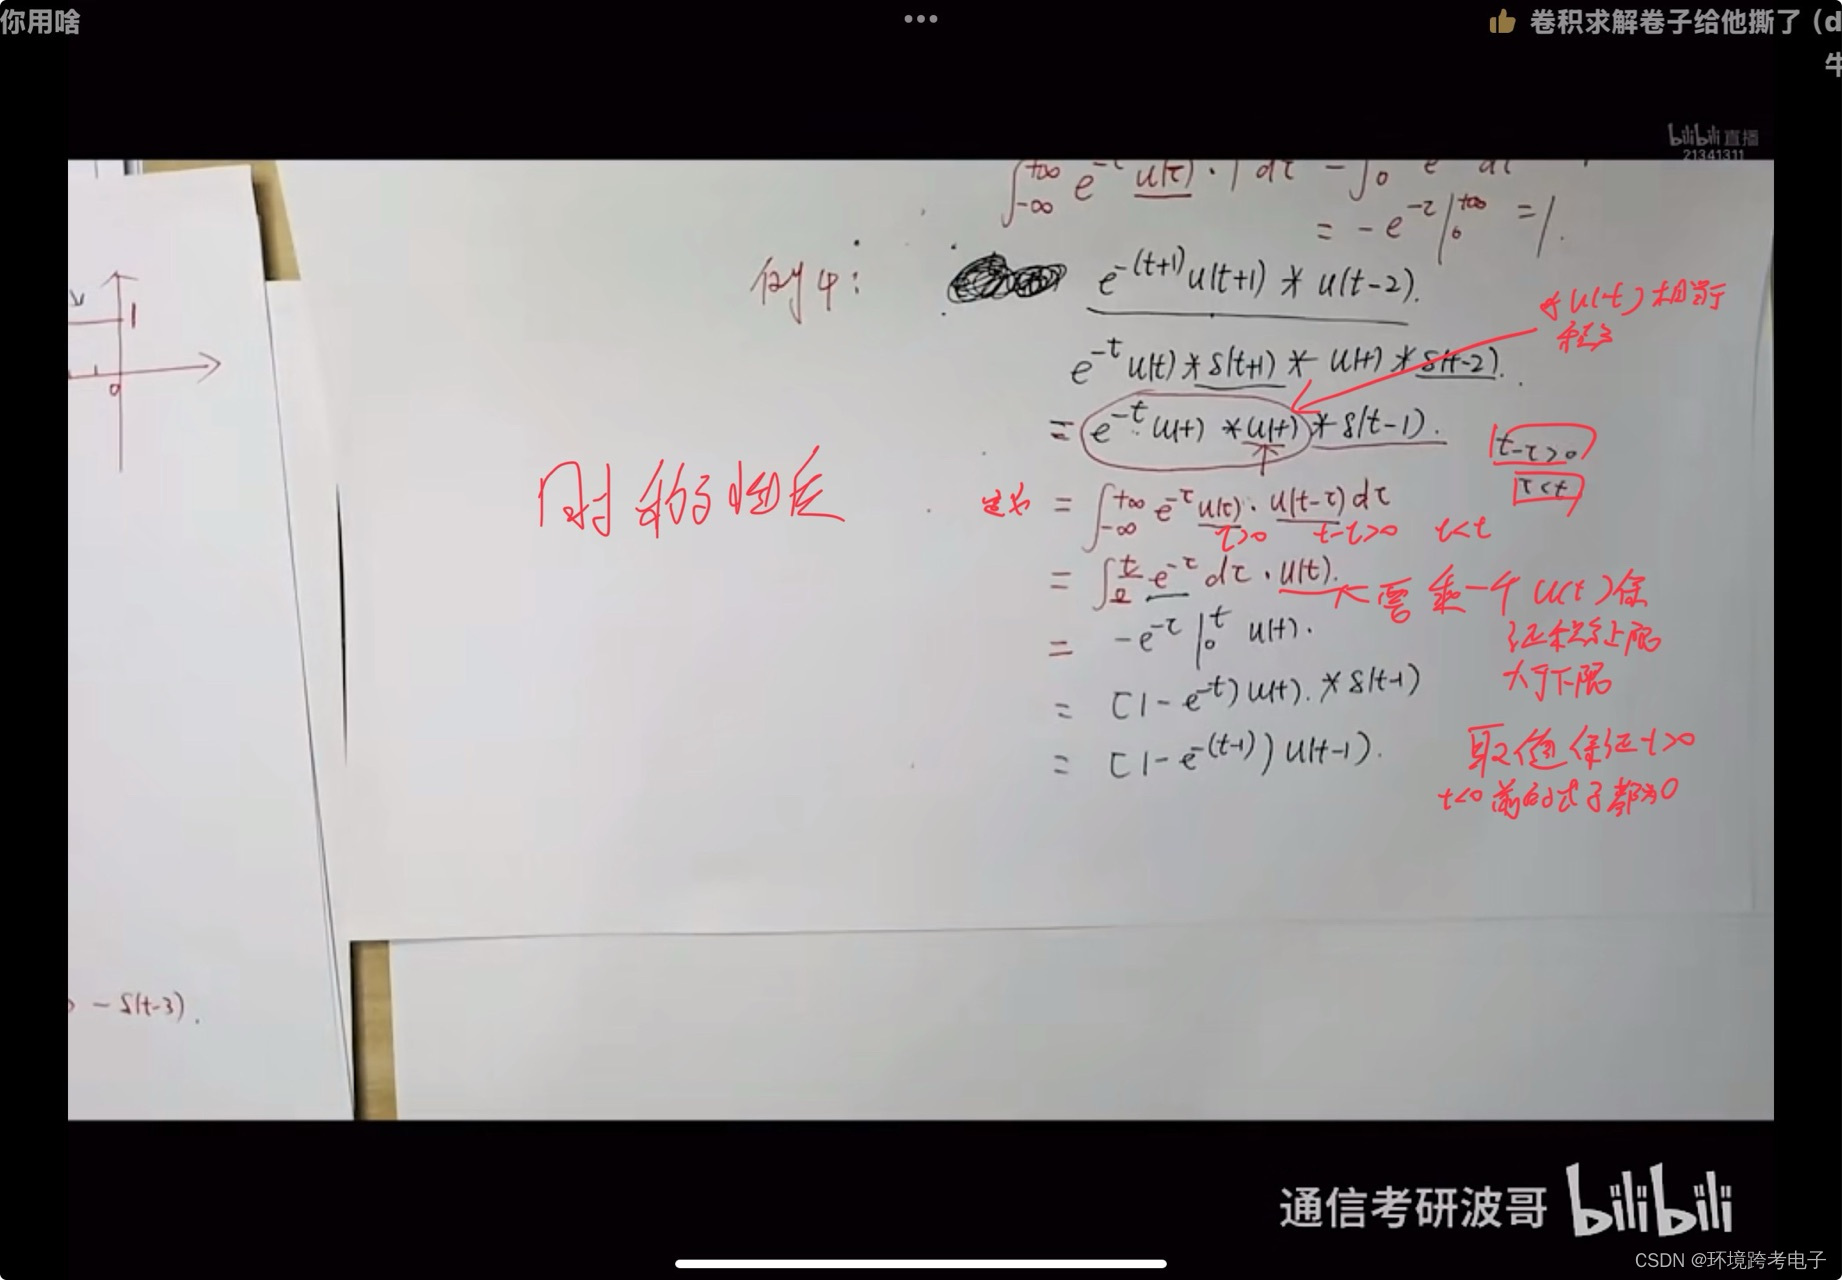 你用啥
卷积求解卷子给他撕了（d
牛
bilibili 直播
21341311
∫_{-∞}^{+∞} e^{-τ} u(τ)·1 dτ = ∫_0
= -e^{-τ} |_0^{+∞} = 1.
例4:
e^{-(t+1)} u(t+1) * u(t-2).
* u(t) 相当于
积分
e^{-t} u(t) * δ(t+1) * u(t) * δ(t-2).
= e^{-t} u(t) * u(t) * δ(t-1).
t-τ>0
τ<t
时移性质
定义 = ∫_{-∞}^{+∞} e^{-τ} u(τ)·u(t-τ) dτ
τ>0 t-τ>0 τ<t
= ∫_0^t e^{-τ} dτ · u(t).
需乘一个 u(t) 保
证积分上限
大于下限
= -e^{-τ} |_0^t u(t).
= [1-e^{-t}) u(t). * δ(t-1)
= [1-e^{-(t-1)}) u(t-1).
取值保证 t>0
t<0 前的式子都为0
1
0
- δ(t-3).
通信考研波哥 bilibili
CSDN @环境跨考电子